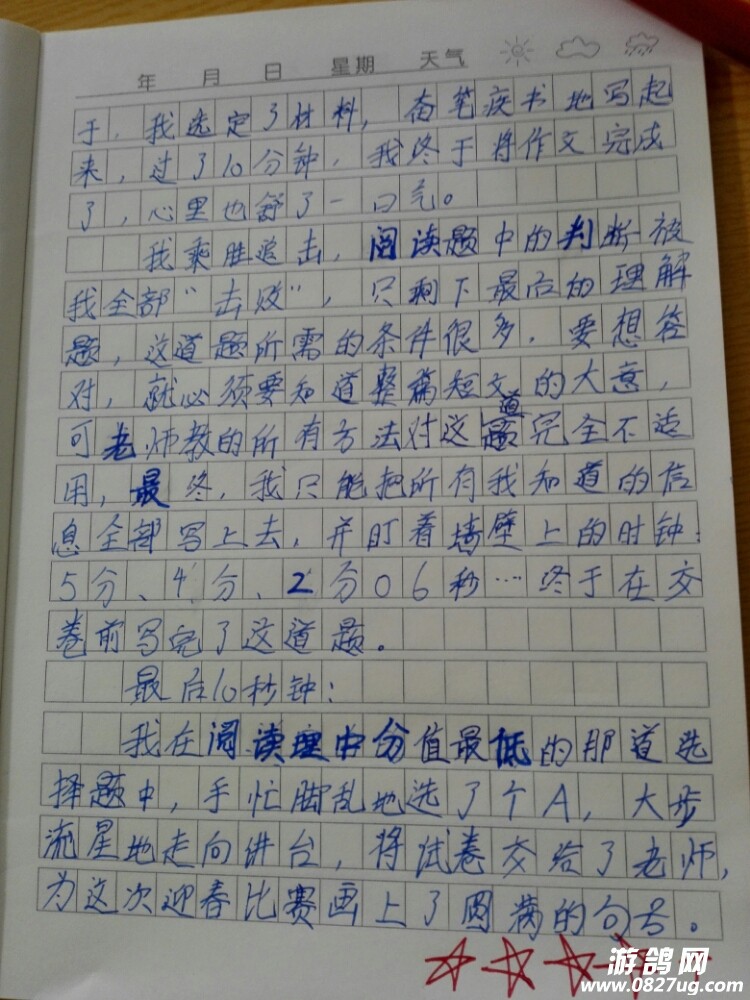 年 月 日 星期 天气
于，我选定了材料，奋笔疾书地写起
来，过了10分钟，我终于将作文完成
了，心里也舒了一口气。
我乘胜追击，阅读题中的判断被
我全部“击败”，只剩下最后的理解
题，这道题所需的条件很多，要想答
对，就必须要知道整篇短文的大意，
可老师教的所有方法对这道题完全不适
用，最终，我只能把所有我知道的信
息全部写上去，并盯着墙壁上的时钟：
5分、4分、2分06秒…终于在交
卷前写完了这道题。
最后10秒钟：
我在阅读理中分值最低的那道选
择题中，手忙脚乱地选了个A，大步
流星地走向讲台，将试卷交给了老师，
为这次迎春比赛画上了圆满的句号。
游鸽网
www.0827ug.com